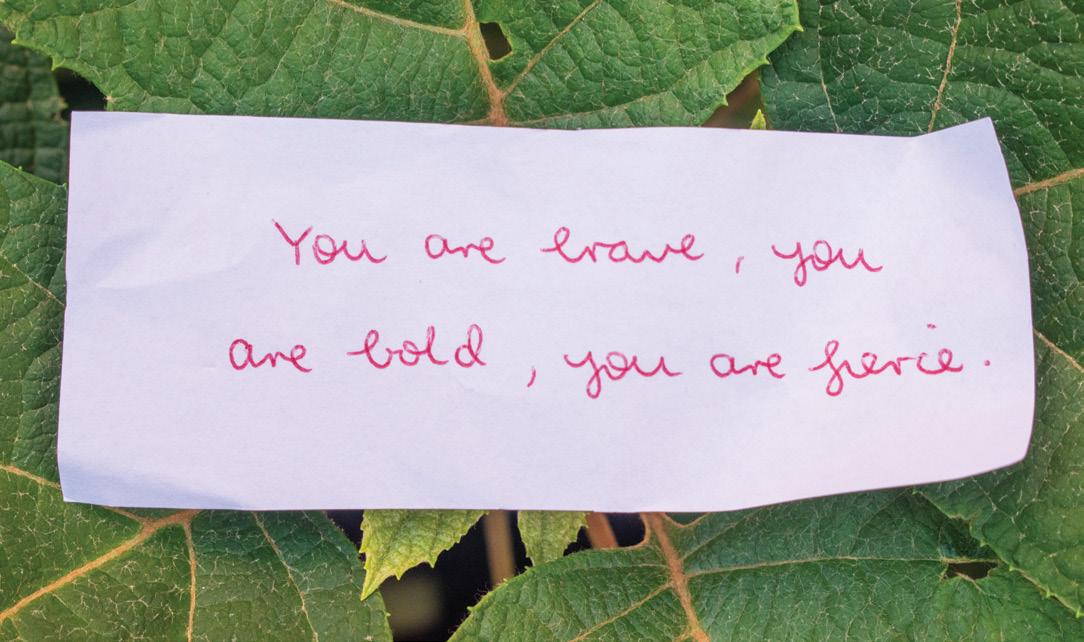 You are brave, you
are bold, you are fierce.